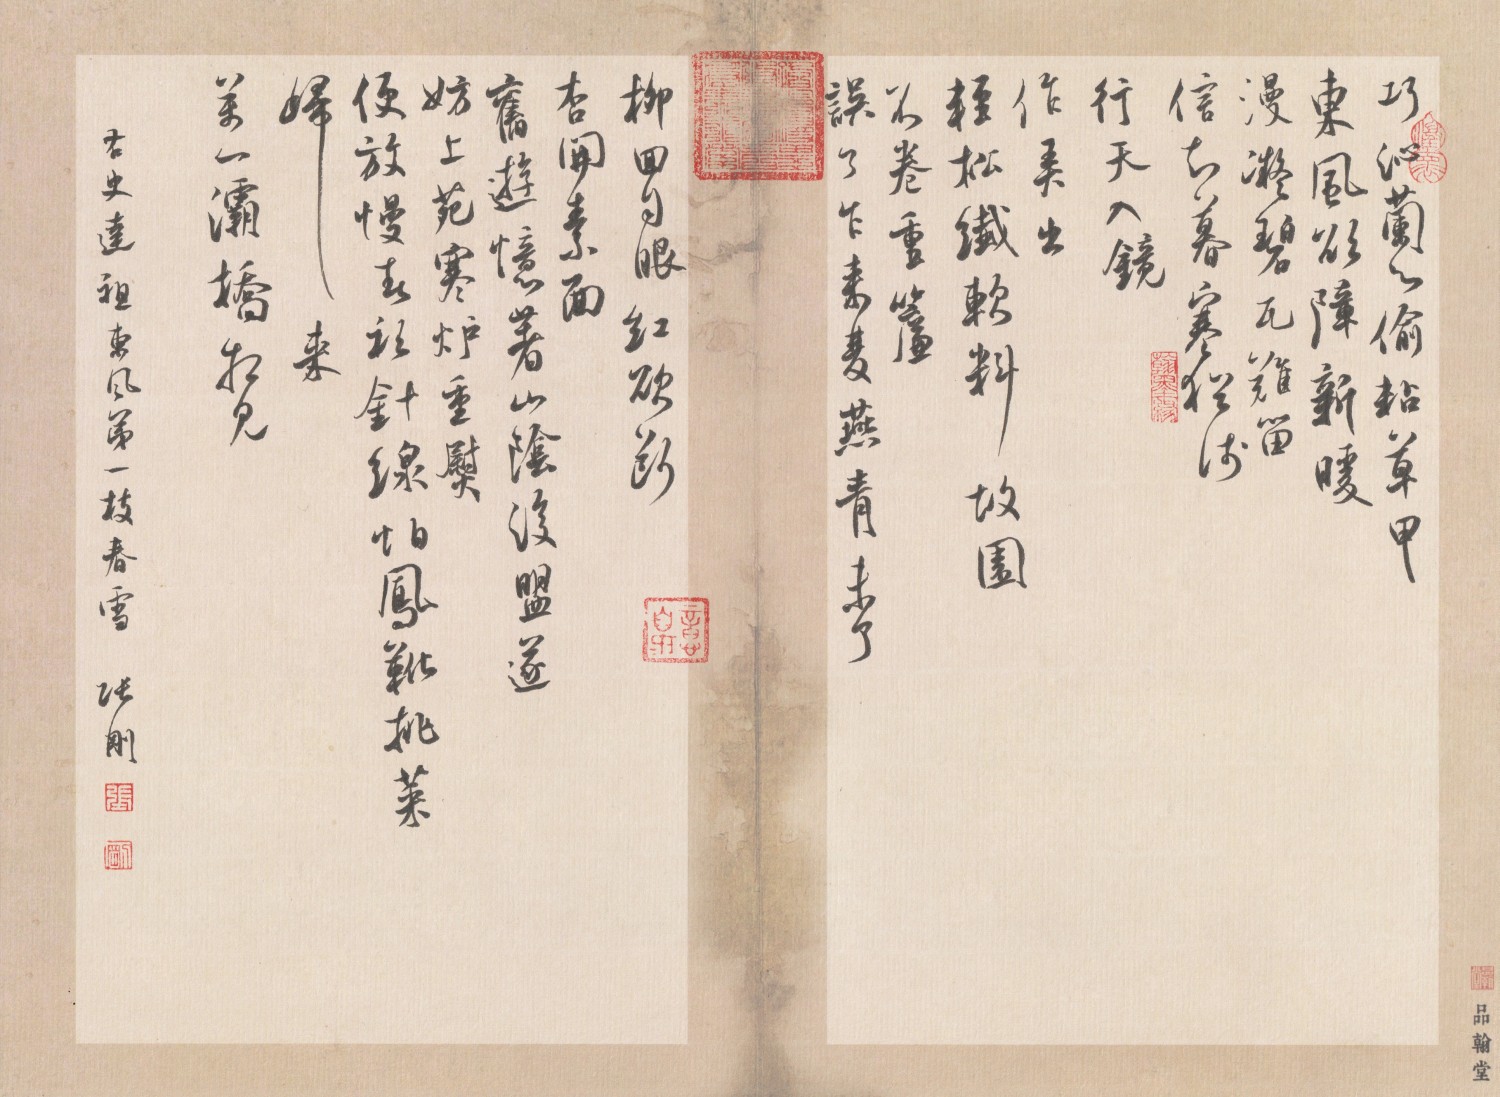 巧沁蘭心偷粘草甲
東風欲障新暖
漫凝碧瓦難留
信知暮寒猶浅
行天入鏡
作弄出
輕松纖軟料故園
不卷重簾
誤了乍来雙燕青未了
柳回白眼紅欲斷
杏開素面
舊遊憶著山陰後盟遂
妨上苑寒炉重熨
便放慢春衫針線怕鳳靴挑菜
歸来
萬一灞橋相見
右史達祖東風第一枝春雪 張剛
張
剛
品翰堂